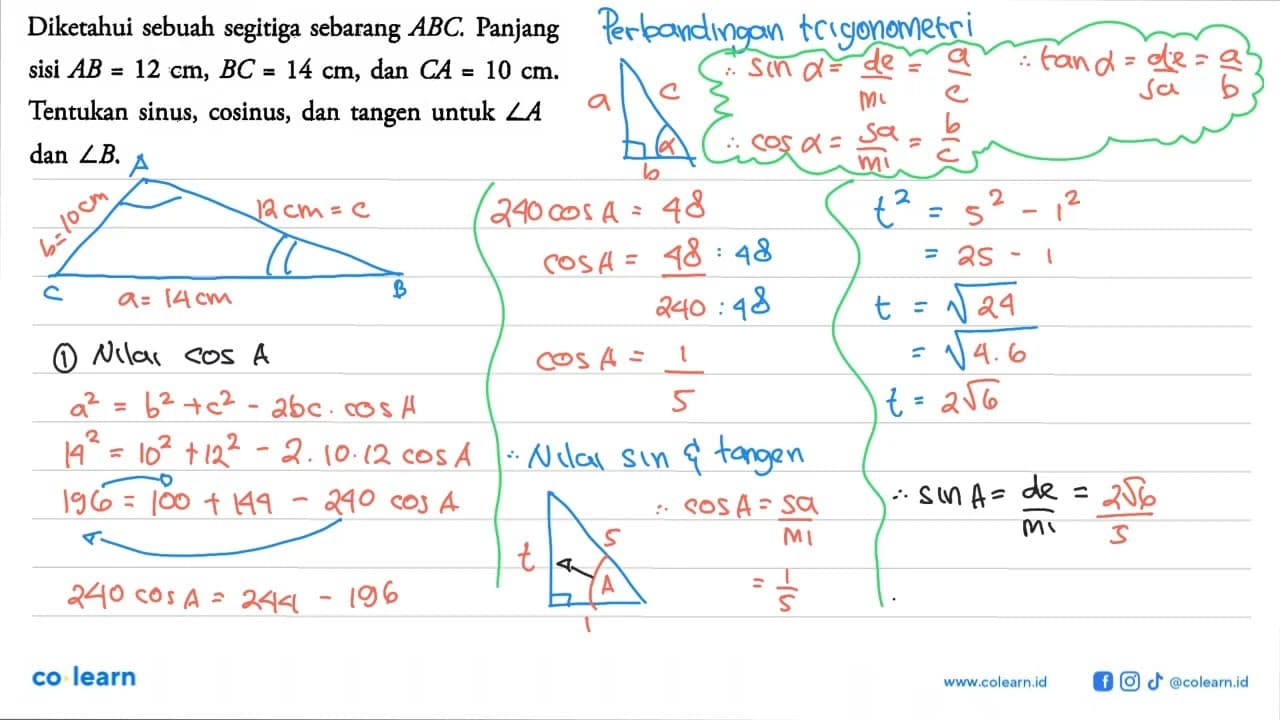 Diketahui sebuah segitiga sebarang ABC. Panjang
sisi AB = 12 cm, BC = 14 cm, dan CA = 10 cm.
Tentukan sinus, cosinus, dan tangen untuk ∠A
dan ∠B.
Perbandingan trigonometri
a c α b
∴ sin α = de/mi = a/c
∴ tan α = de/sa = a/b
∴ cos α = sa/mi = b/c
A
b=10cm
12 cm = c
C
a = 14 cm
B
① Nilai cos A
a² = b² + c² - 2bc . cos A
14² = 10² + 12² - 2 . 10 . 12 cos A
196 = 100 + 144 - 240 cos A
240 cos A = 244 - 196
240 cos A = 48
cos A = 48 : 48
240 : 48
cos A = 1/5
∴ Nilai sin & tangen
t 5 A 1
∴ cos A = sa/mi
= 1/5
t² = 5² - 1²
= 25 - 1
t = √24
= √4.6
t = 2√6
∴ sin A = de/mi = 2√6/5
co learn
www.colearn.id
@colearn.id